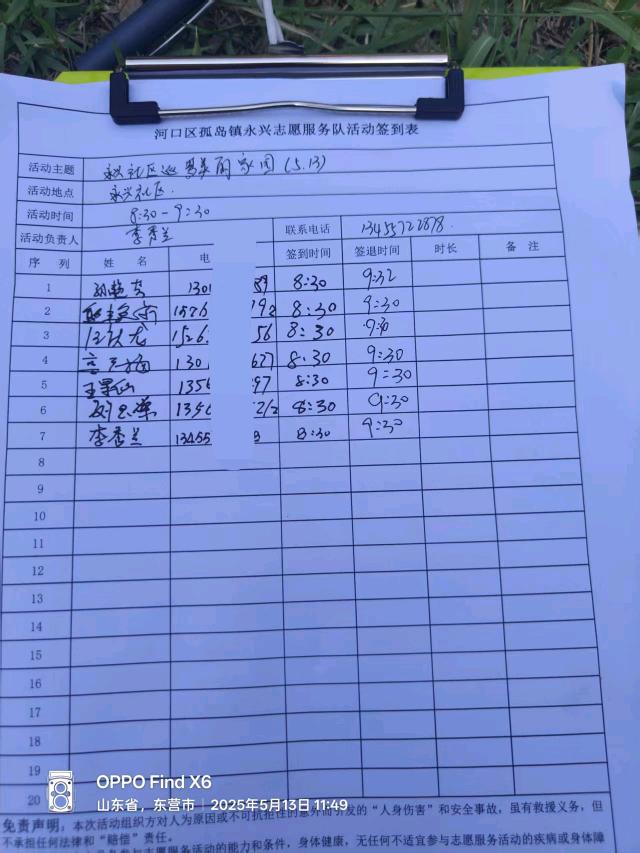 河口区孤岛镇永兴志愿服务队活动签到表
活动主题 永兴社区 家园(5.13)
活动地点 永兴社区.
活动时间 8:30-9:30
活动负责人 李秀兰 联系电话 13455722878.
序列 姓名 电 签到时间 签退时间 时长 备注
1 1301 89 8:30 9:32
2 1576 192 8:30 9:30
3 1526. 56 8:30 9:30
4 130 627 8:30 9:30
5 1356 97 8:30 9:30
6 8:30 9:30
7 李秀兰 13455 8:30 9:30
8
9
10
11
12
13
14
15
16
17
18
19
20
OPPO Find X6
山东省，东营市 | 2025年5月13日 11:49
免责声明：本次活动组织方对人为原因或不可抗拒性的意外而引发的“人身伤害”和安全事故，虽有救援义务，但
不承担任何法律和“赔偿”责任。
参与志愿服务活动的能力和条件，身体健康，无任何不适宜参与志愿服务活动的疾病或身体障